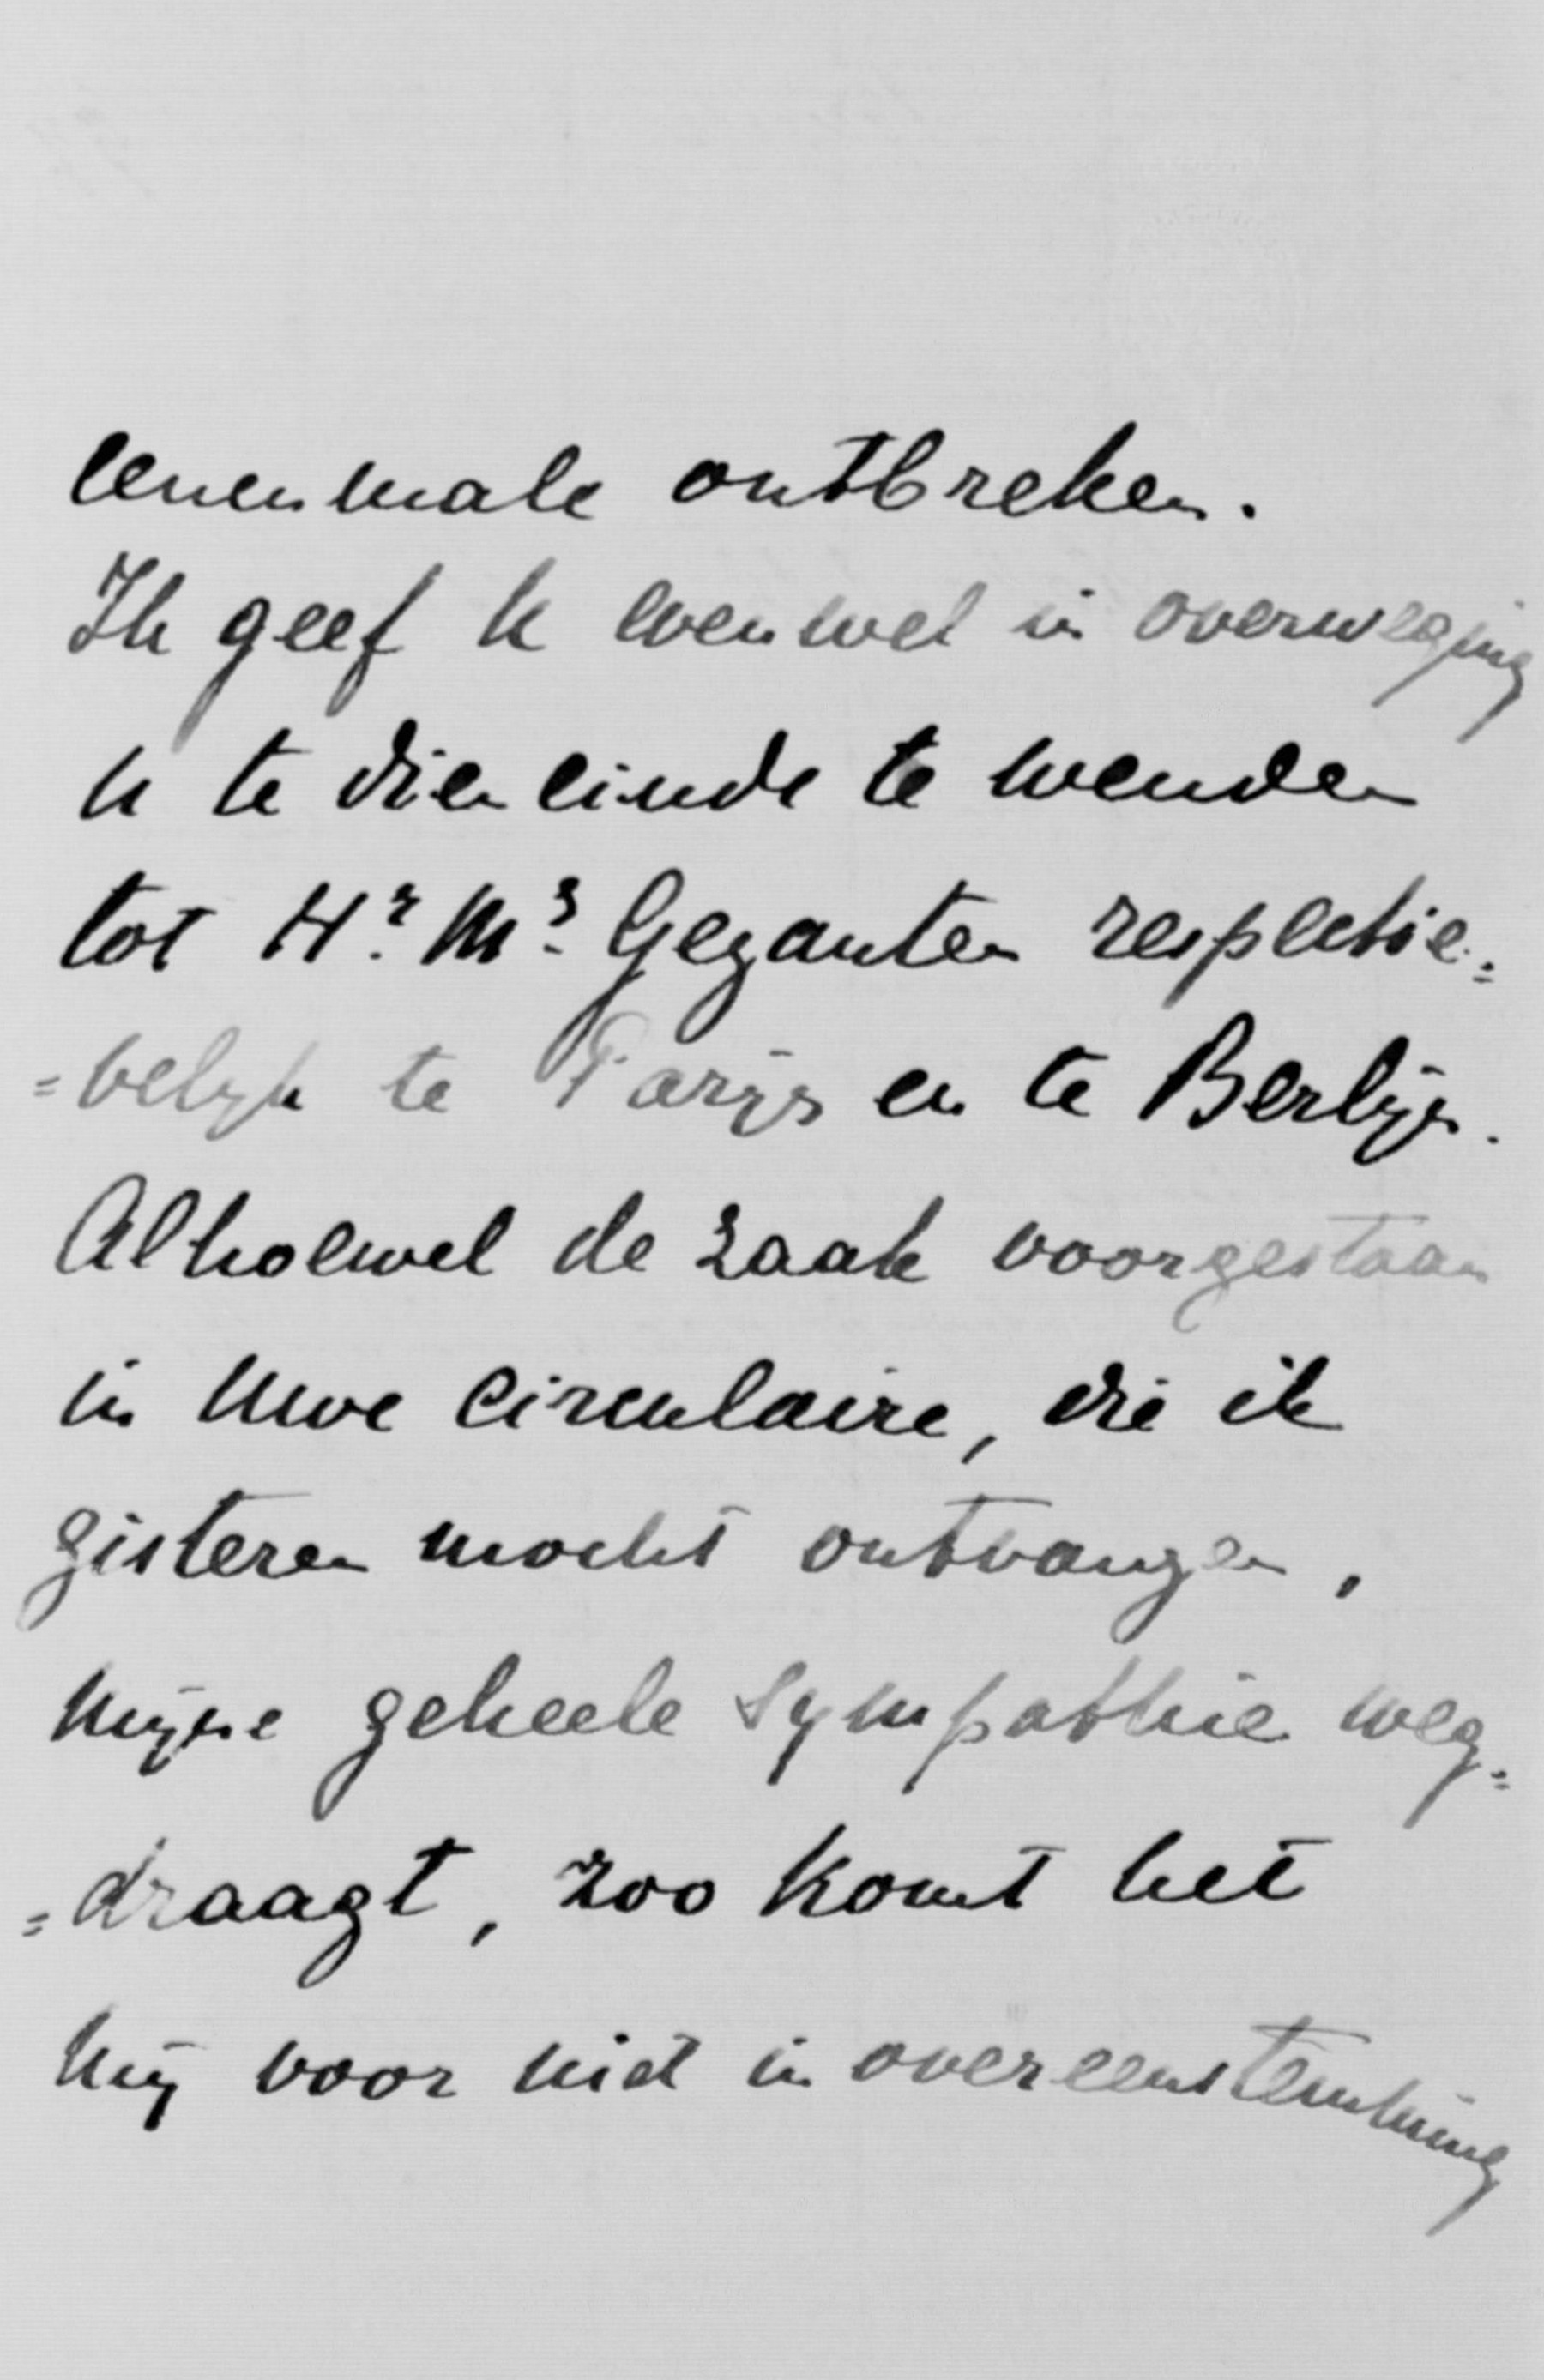 eenenmale ontbreken.
Ik geef U evenwel in overweging
U te dien einde te wenden
tot Hr. Ms. Gezanten respectie=
=velijk te Parijs en te Berlijn.
Alhoewel de zaak voorgestaan
in Uwe circulaire, die ik
gisteren mocht ontvangen,
mijne geheele sympathie weg=
=draagt, zoo komt het
mij voor niet in overeenstemming